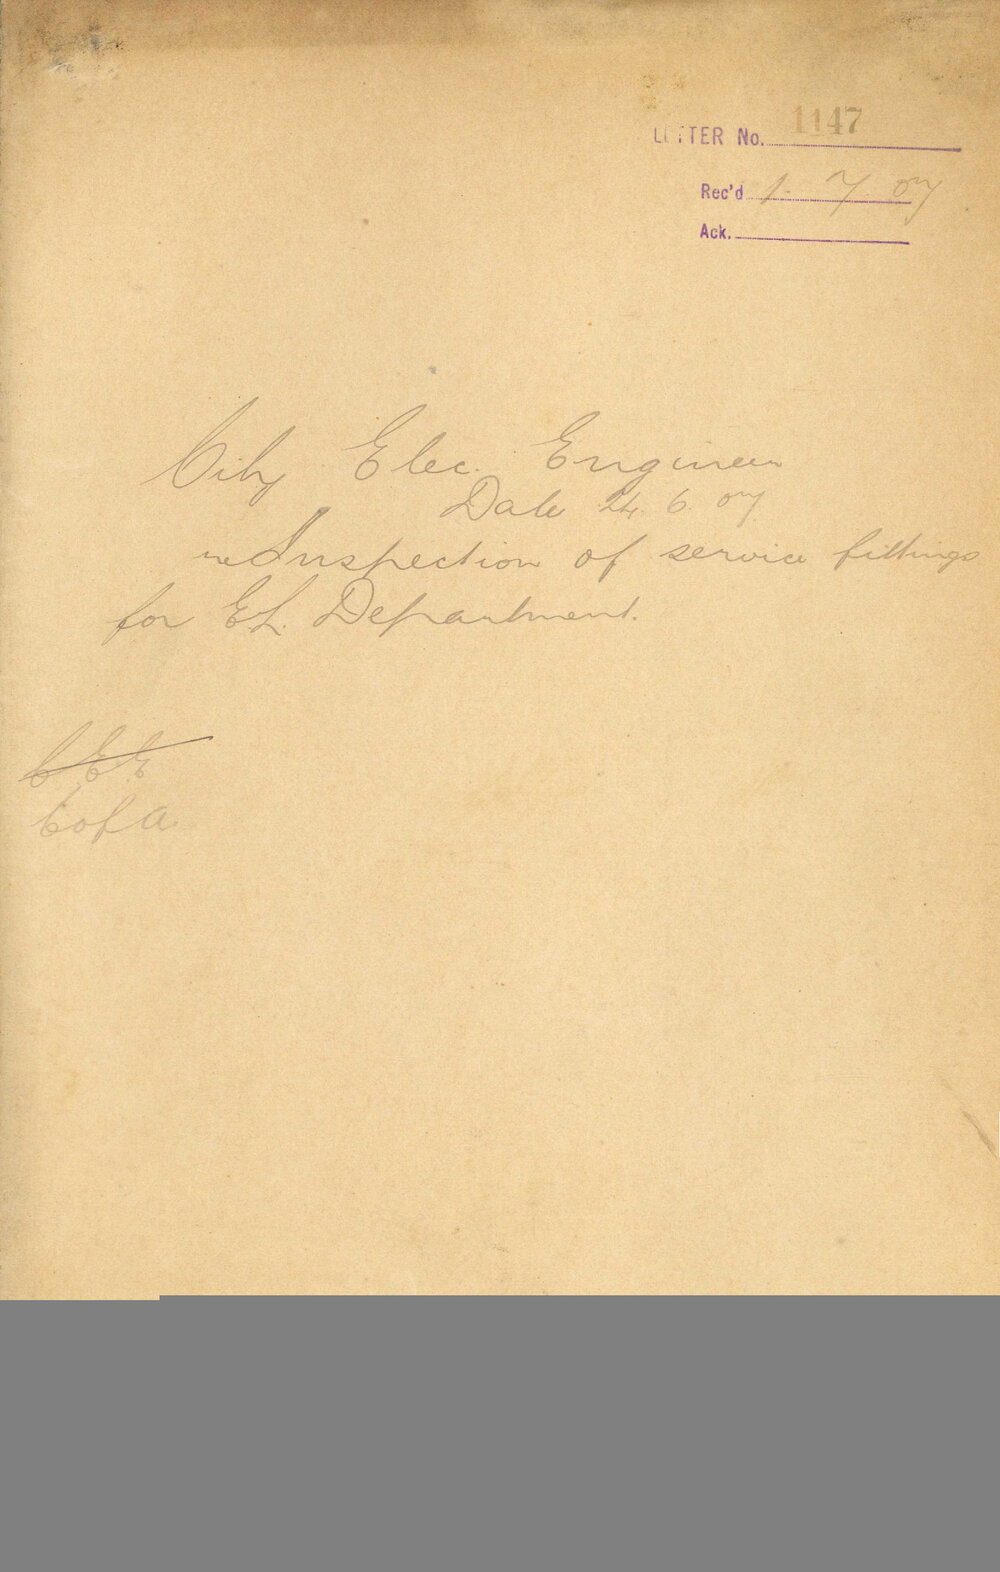 LETTER No. 1147
Rec'd 1. 7. 07
Ack.
City Elec. Engineer
Date 24. 6. 07
re Inspection of service fittings
for EL. Department.
C E E
C of A